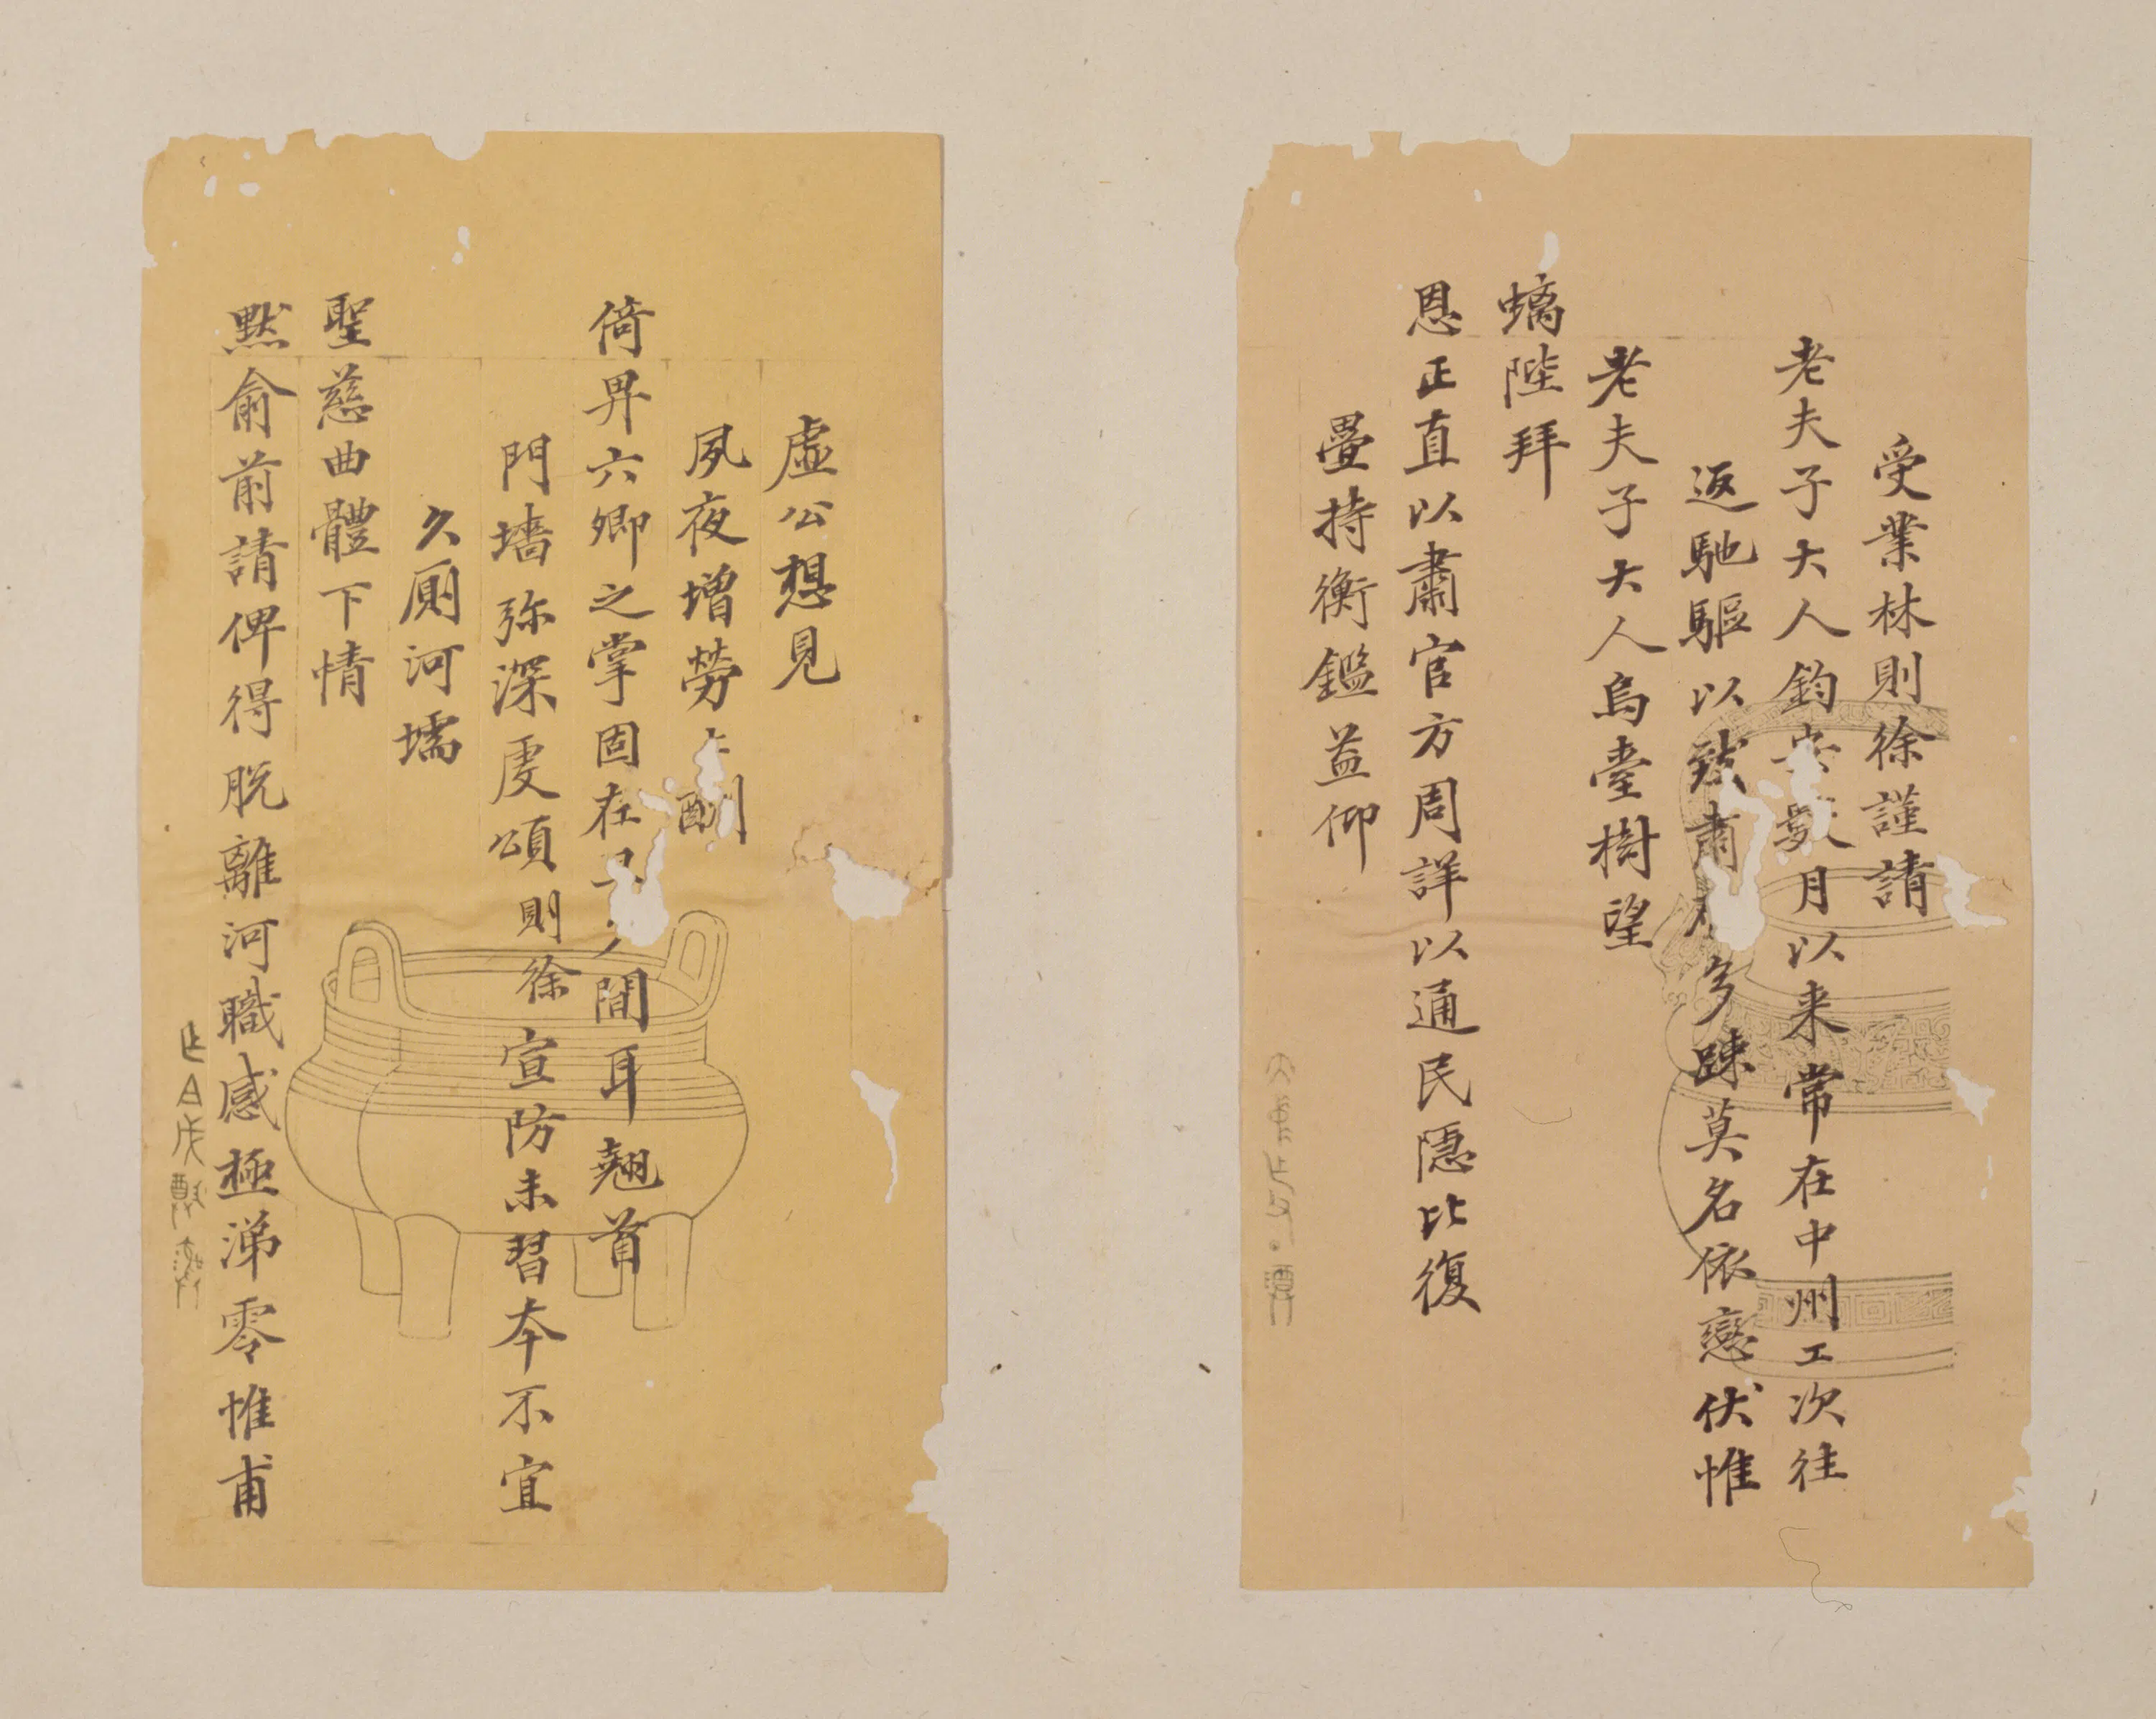 受業林則徐謹請
老夫子大人鈞安數月以来常在中州工次往
返馳驅以致肅多踈莫名依戀伏惟
老夫子大人烏臺樹望
螭陛拜
恩正直以肅官方周詳以通民隱比復
疊持衡鑑益仰
虛公想見
夙夜增勞
倚畀六卿之掌固在間耳翹首
門墻弥深虔頌則徐宣防未習本不宜
久厠河壖
聖慈曲體下情
黙俞前請俾得脫離河職感極涕零惟甫